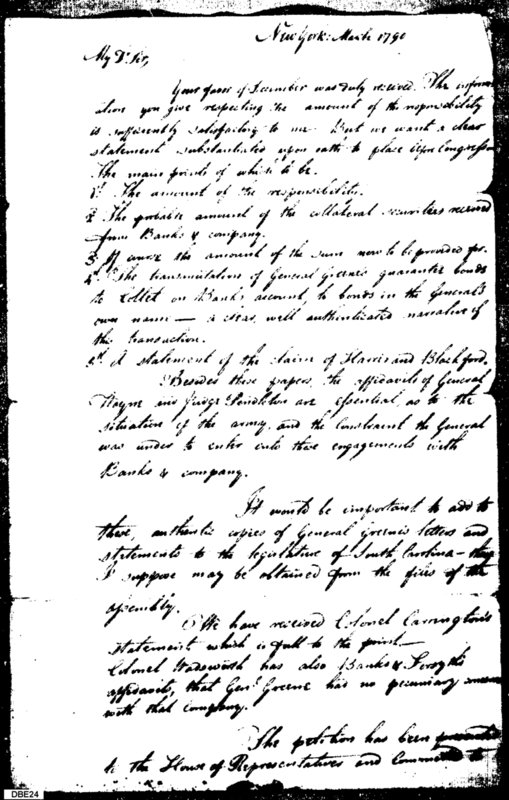 New York: March 1790
My Dr. Sir,
Your favor of December was duly received. The inform-
ation you give respecting the amount of the responsibility
is sufficiently satisfactory to me. But we want a clear
statement substantiated upon oath to place before Congress
The main points of which to be.
1st. The amount of the responsibility.
2d. The probable amount of the collateral securities received
from Banks & company.
3d. Of course the amount of the sum now to be provided for.
4th. The transmutation of General Greene's guarantee bonds
to Collet on Banks' account, to bonds in the General's
own name — a clear, well authenticated narrative of
the transaction.
5th. A statement of the claim of Harris and Blachford.
Besides these papers, the affidavits of General
Wayne and Judge Pendleton are essential, as to the
situation of the army, and the constraint the General
was under to enter into these engagements with
Banks & company.
It would be important to add to
these, authentic copies of General Greene's letters and
statements to the legislature of South Carolina — they
I suppose may be obtained from the files of the
assembly.
We have received Colonel Carrington's
statement which is full to the point —
Colonel Wadsworth has also Banks & Forsyth's
affidavits, that Genl. Greene had no pecuniary
with that company.
The petition has been presented
to the House of Representatives and Committed to
DBE24